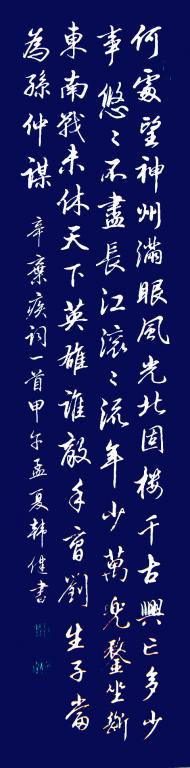 何處望神州滿眼風光北固樓千古興亡多少
事悠〻不盡長江滚〻流年少萬兜鍪坐斷
東南戰未休天下英雄誰敵手曹劉生子當
為孫仲謀
辛棄疾词一首甲午孟夏韓健書